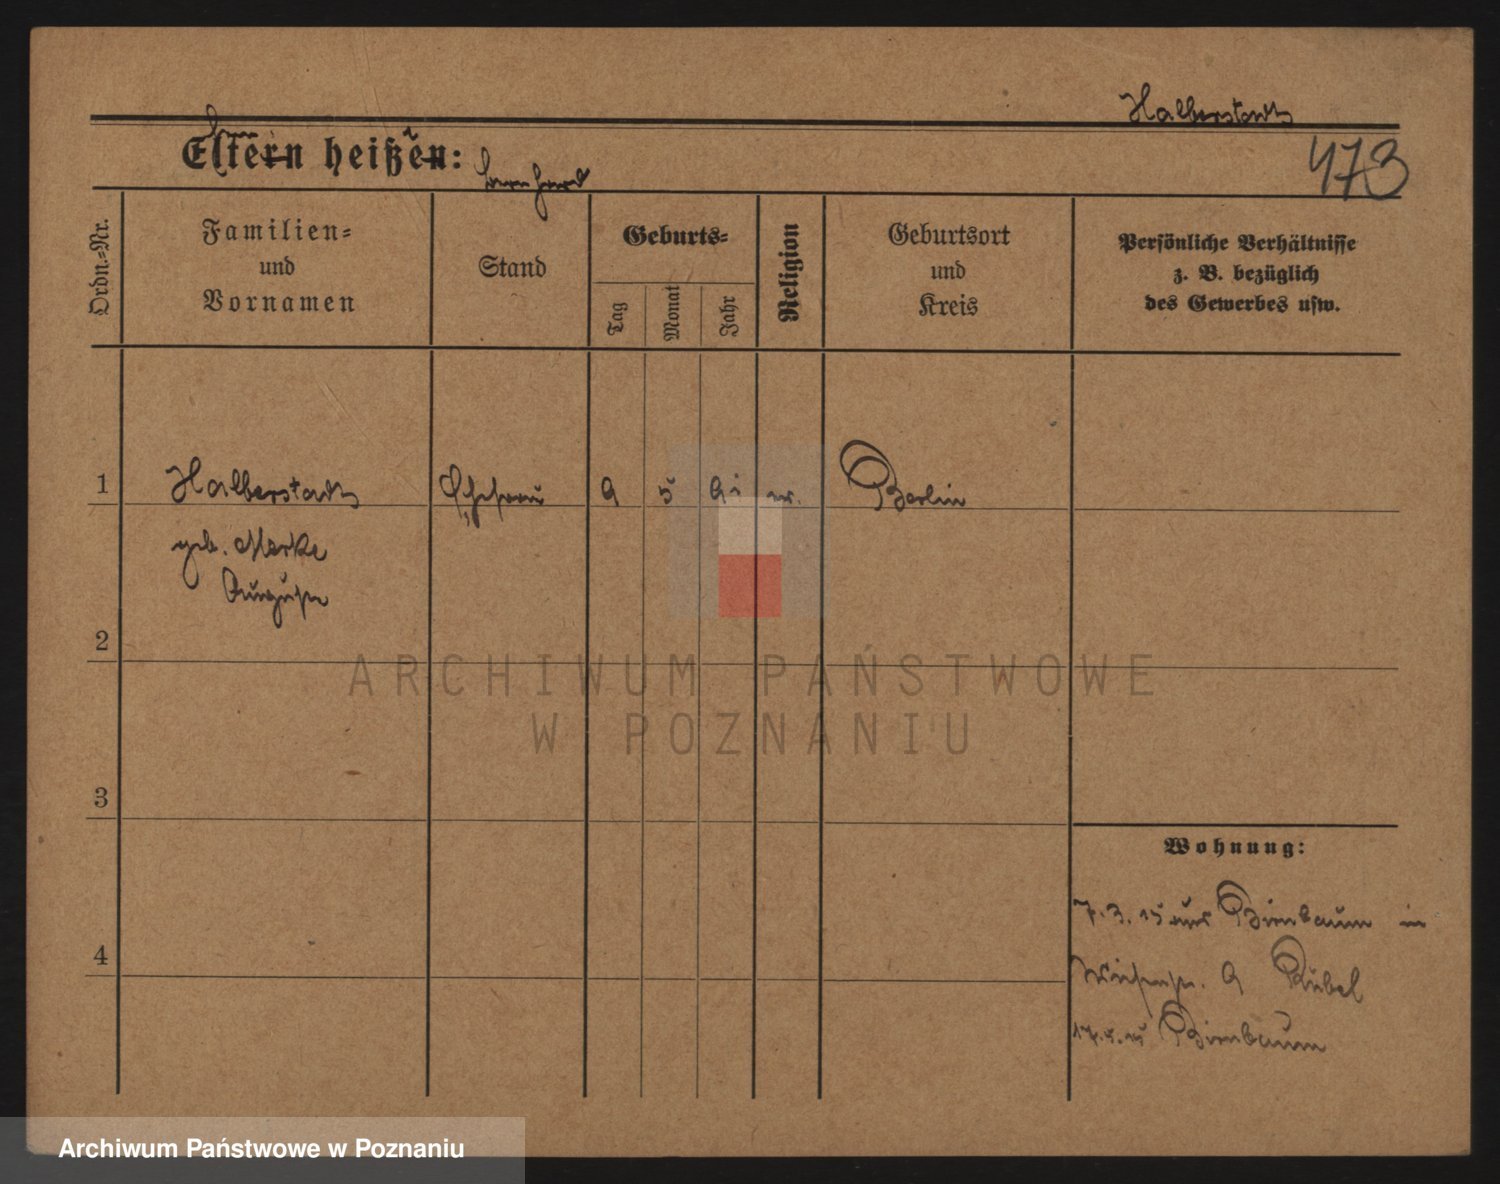 Halberstadt
Eltern heißen:
473
Bernhard
Ordn.-Nr.
Familien-
und
Vornamen
Stand
Geburts-
Tag
Monat
Jahr
Religion
Geburtsort
und
Kreis
Persönliche Verhältnisse
z. B. bezüglich
des Gewerbes usw.
1
Halberstadt Ehefrau 9 5 Berlin
geb.
Auguste
2
3
4
Wohnung:
7.3.15 aus Birnbaum in
9
Birnbaum
ARCHIWUM PAŃSTWOWE
W POZNANIU
Archiwum Państwowe w Poznaniu